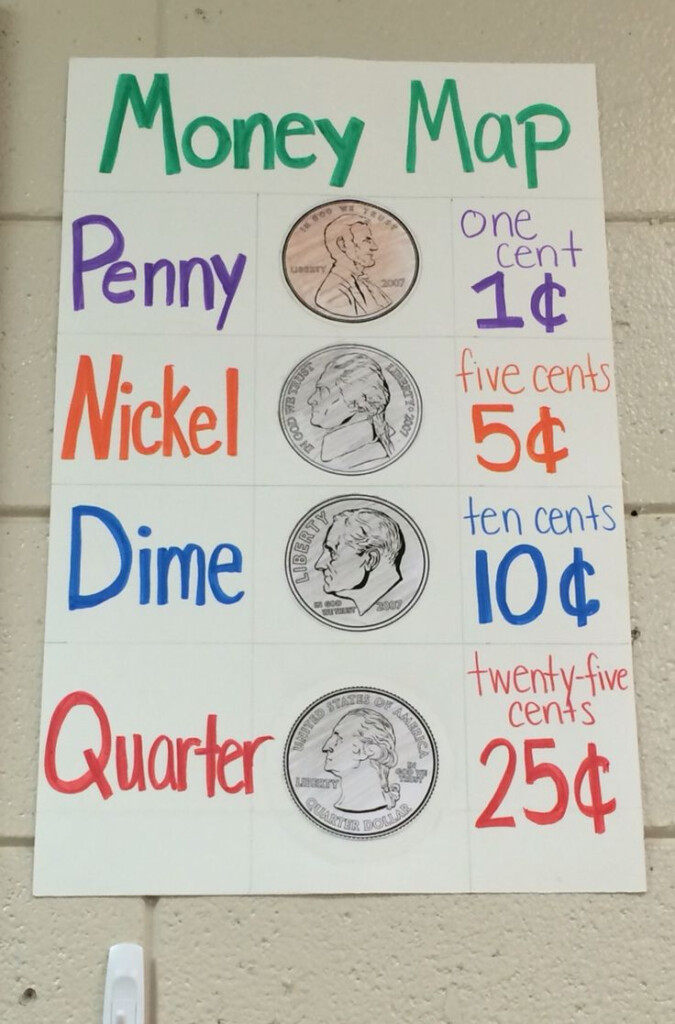 Money Map
Penny
IN GOD WE TRUST
LIBERTY
2007
one
cent
1¢
Nickel
IN GOD WE TRUST
LIBERTY • 2007
five cents
5¢
Dime
LIBERTY
IN GOD
WE TRUST
2007
ten cents
10¢
Quarter
UNITED STATES OF AMERICA
LIBERTY
IN
GOD WE
TRUST
QUARTER DOLLAR
twenty-five
cents
25¢